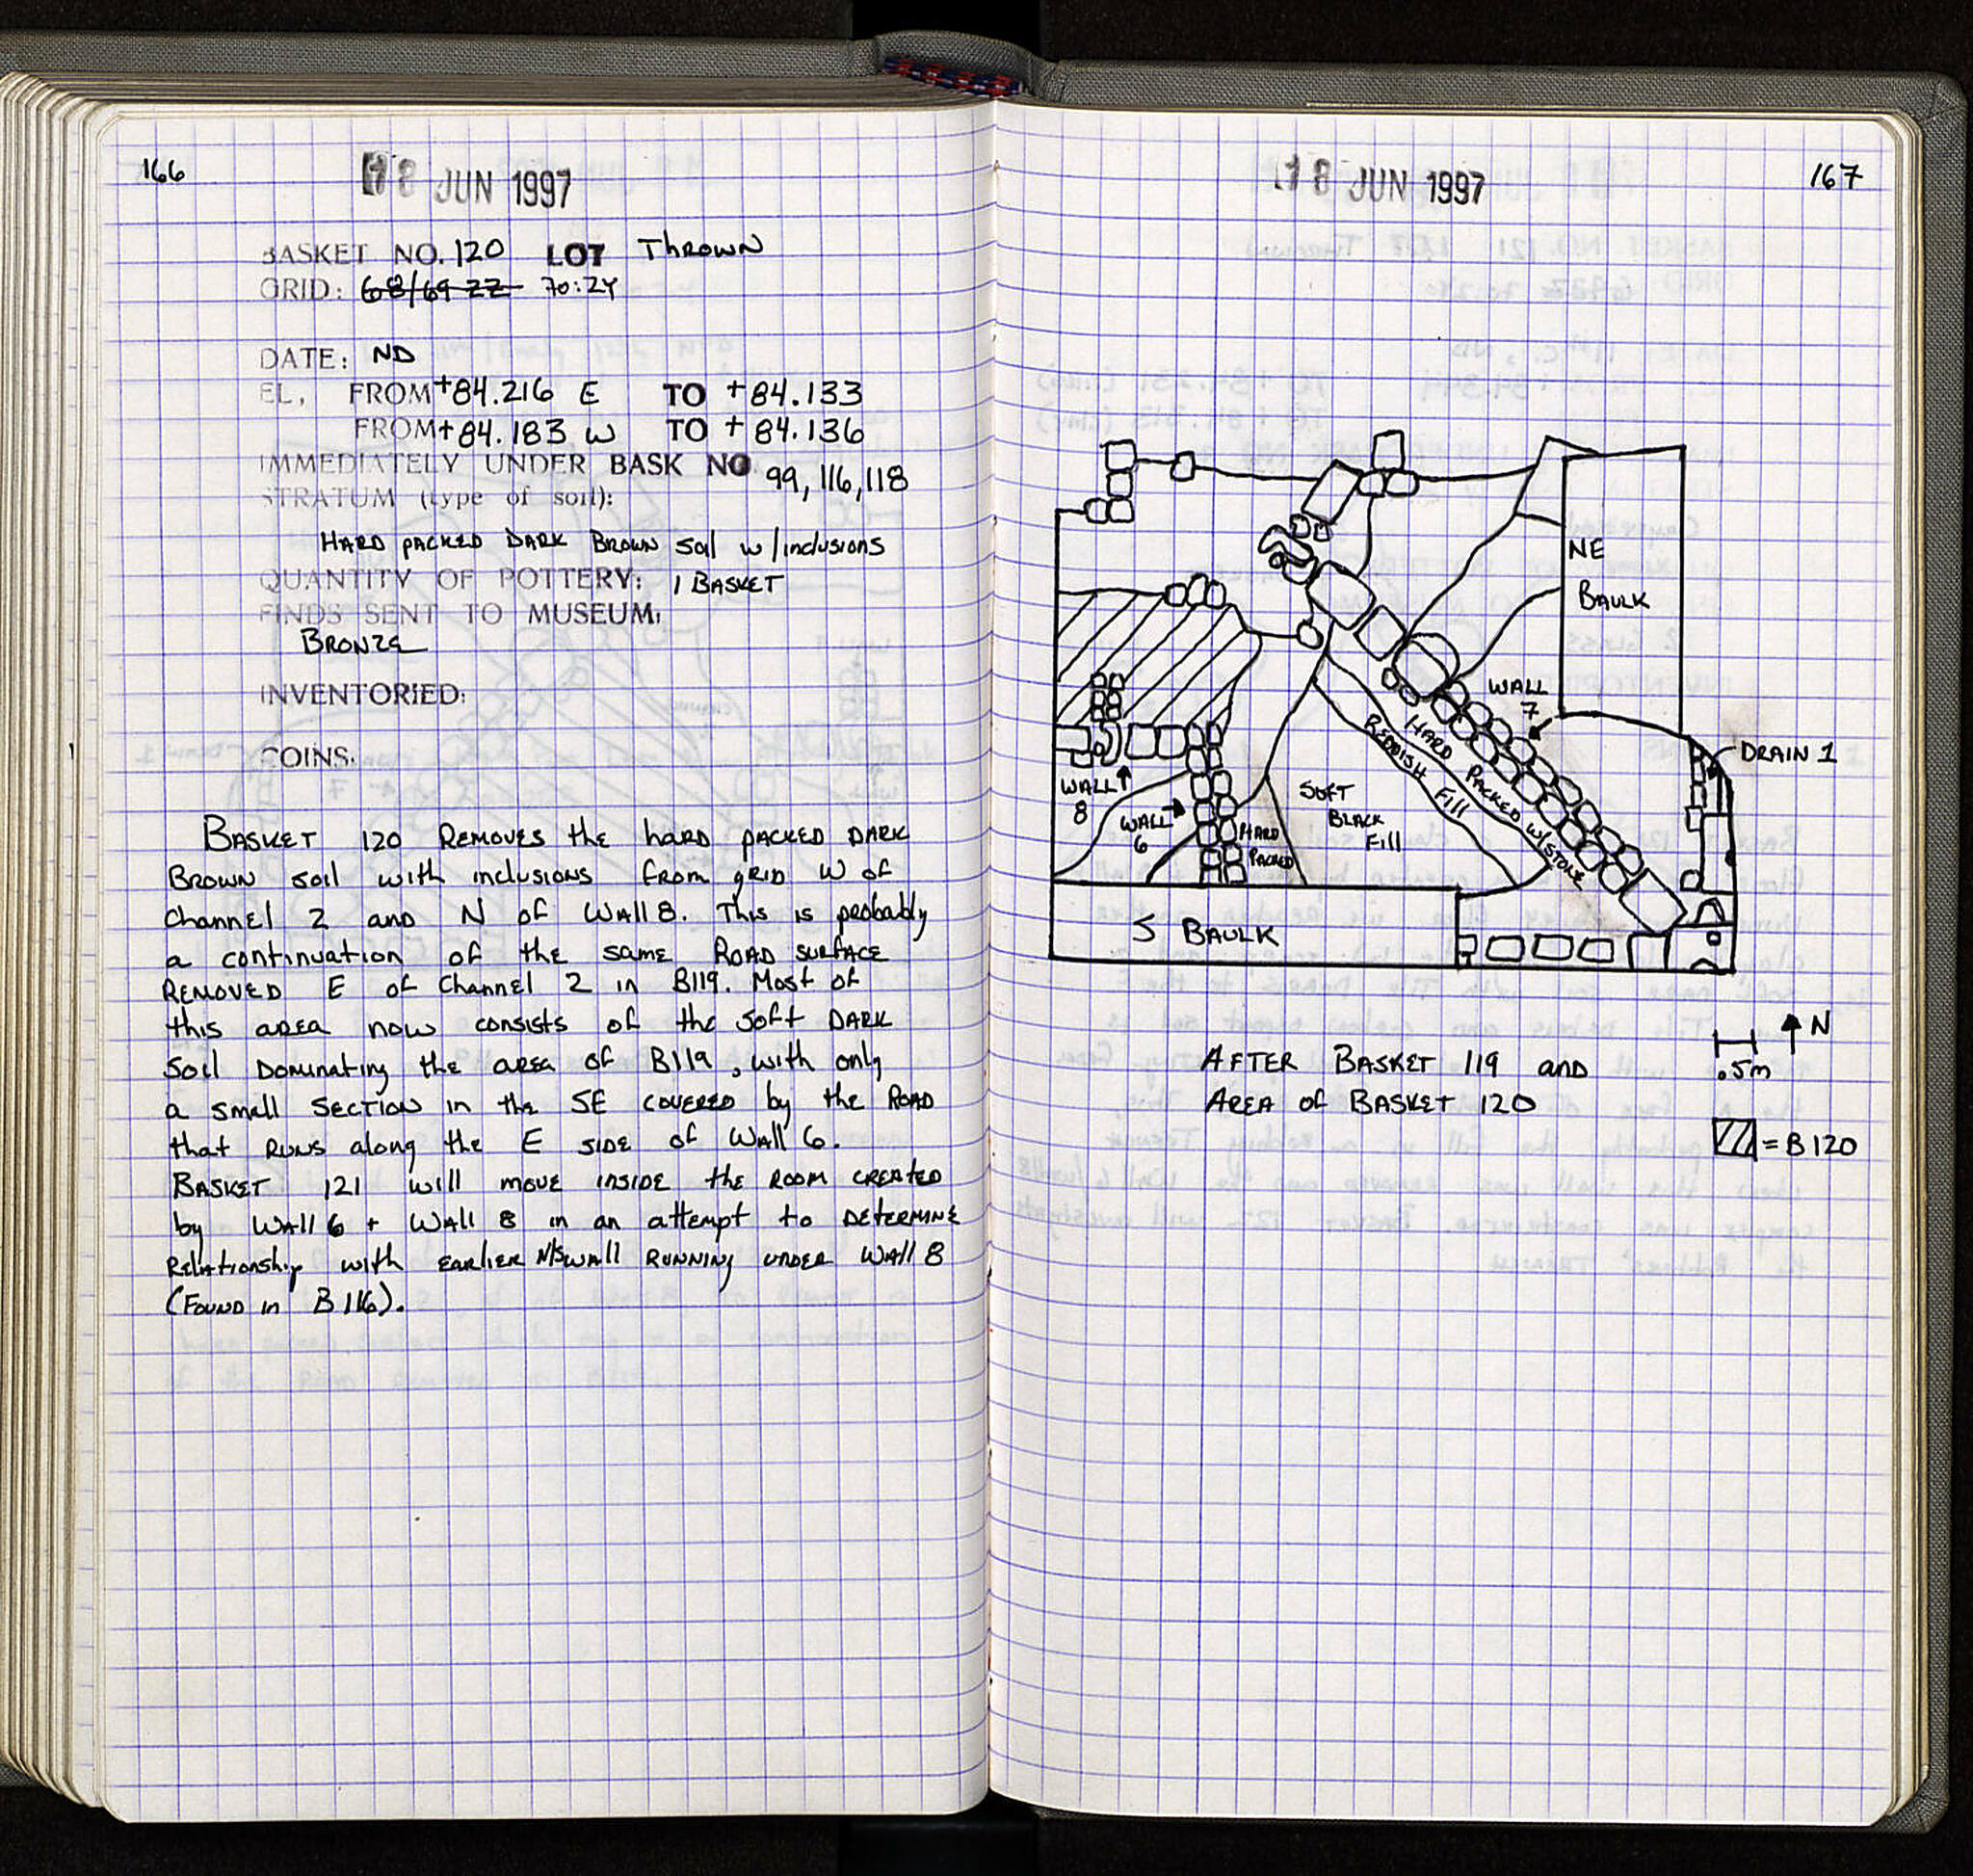 166
18 JUN 1997
BASKET NO. 120 LOT Thrown
GRID: 68/69 ZZ 70:ZY
DATE: ND
EL, FROM +84.216 E TO +84.133
FROM +84.183 W TO +84.136
IMMEDIATELY UNDER BASK NO 99, 116, 118
STRATUM (type of soil):
HARD PACKED DARK BROWN Soil w/inclusions
QUANTITY OF POTTERY: 1 BASKET
FINDS SENT TO MUSEUM:
BRONZE
INVENTORIED:
COINS:
BASKET 120 REMOVES the hard packed DARK
BROWN soil with inclusions from grid W of
Channel 2 and N of WALL 8. This is probably
a continuation of the same ROAD SURFACE
REMOVED E of Channel 2 in B119. Most of
this area now consists of the soft DARK
Soil Dominating the area of B119, with only
a small section in the SE COVERED by the ROAD
that RUNS along the E SIDE of Wall 6.
BASKET 121 will move inside the ROOM CREATED
by WALL 6 + WALL 8 in an attempt to DETERMINE
Relationship with EARLIER N/S wall RUNNING UNDER WALL 8
(FOUND in B 116).
18 JUN 1997
167
NE
BAULK
WALL
7
DRAIN 1
HARD PACKED w/STONE
REDDISH Fill
SOFT
BLACK
Fill
WALL
8
WALL
6
HARD
PACKED
S BAULK
N
.5m
AFTER BASKET 119 AND
AREA of BASKET 120
= B 120